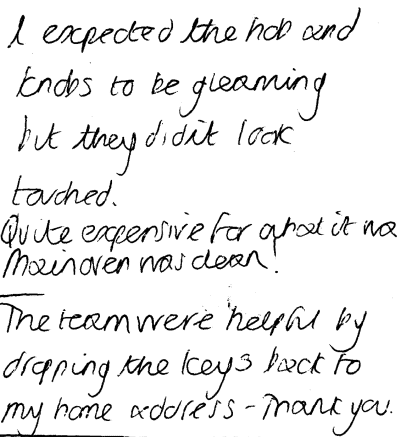 I expected the hob and
knobs to be gleaming
but they didn't look
touched.
Quite expensive for what it wa
Main oven was clean!
The team were helpful by
dropping the keys back to
my home address - Thank you.